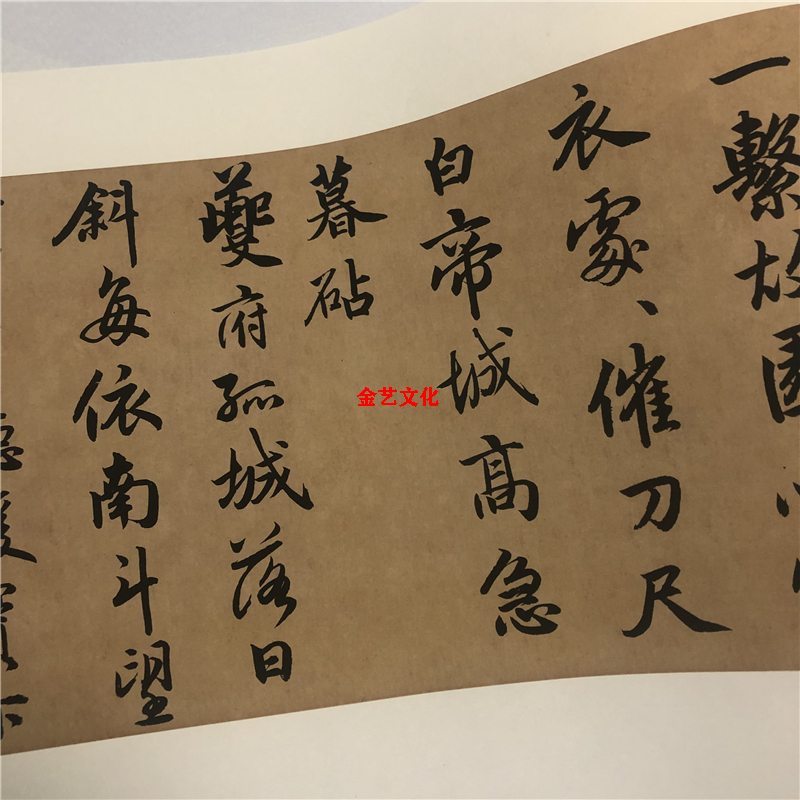 一繫故園心
衣處、催刀尺
白帝城高急
暮砧
夔府孤城落日
斜每依南斗望
聽猨實下
金艺文化